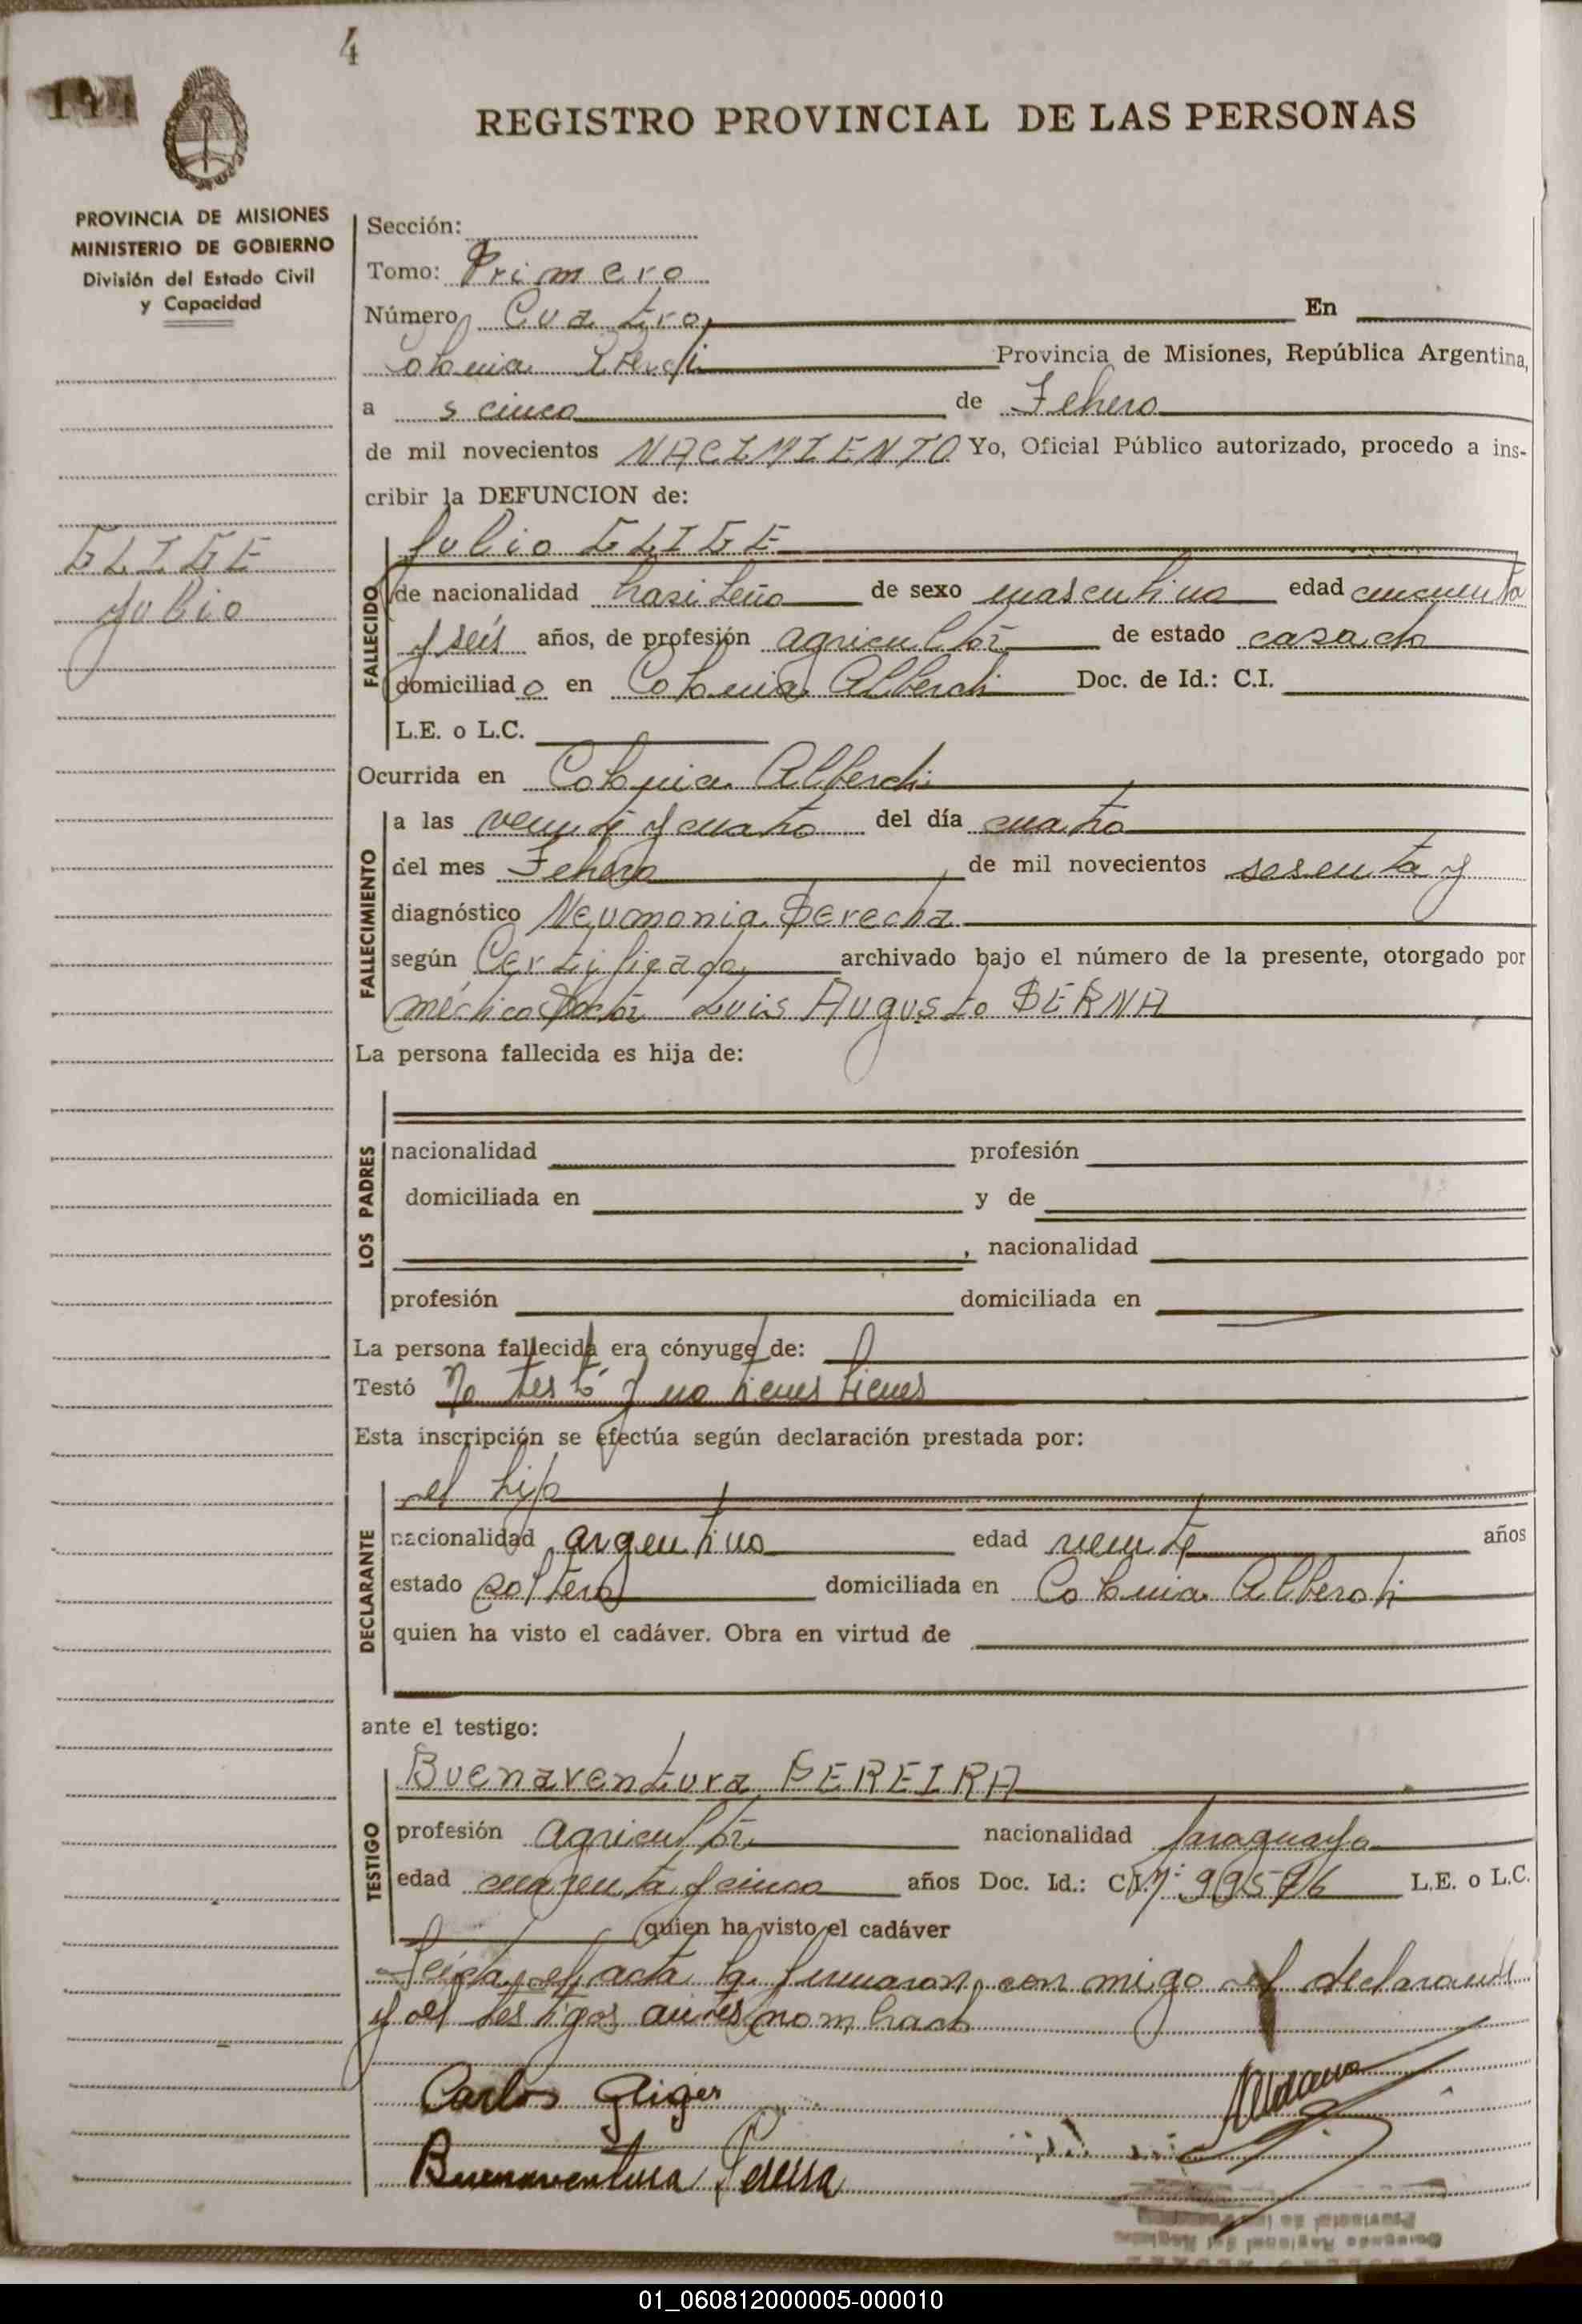 4
REGISTRO PROVINCIAL DE LAS PERSONAS
PROVINCIA DE MISIONES
MINISTERIO DE GOBIERNO
División del Estado Civil
y Capacidad
Sección:
Tomo: Primero
Número Cuatro En
Colonia Alberdi Provincia de Misiones, República Argentina,
a s cinco de Febrero
de mil novecientos NACIMIENTO Yo, Oficial Público autorizado, procedo a ins-
cribir la DEFUNCION de:
GLIGE
Julio
FALLECIDO
Julio GLIGE
de nacionalidad brasileño de sexo masculino edad cincuenta
y seis años, de profesión agricultor de estado casado
domiciliado en Colonia Alberdi Doc. de Id.: C.I.
L.E. o L.C.
Ocurrida en Colonia Alberdi
FALLECIMIENTO
a las veinte y cuatro del día cuatro
del mes Febrero de mil novecientos sesenta y
diagnóstico Neumonia Derecha
según Certificado archivado bajo el número de la presente, otorgado por
médico Doctor Luis Augusto DERNA
La persona fallecida es hija de:
LOS PADRES
nacionalidad profesión
domiciliada en y de
, nacionalidad
profesión domiciliada en
La persona fallecida era cónyuge de:
Testó No testó y no tienes bienes
Esta inscripción se efectúa según declaración prestada por:
DECLARANTE
el hijo
nacionalidad argentino edad veinte años
estado soltero domiciliada en Colonia Alberdi
quien ha visto el cadáver. Obra en virtud de
ante el testigo:
TESTIGO
Buenaventura PEREIRA
profesión agricultor nacionalidad paraguayo
edad cuarenta y cinco años Doc. Id.: C.I. 99576 L.E. o L.C.
quien ha visto el cadáver
Leída el acta la firmaron con migo el declarante
y el testigos antes nombrado
Carlos Gliger
Buenaventura Pereira
01_060812000005-000010